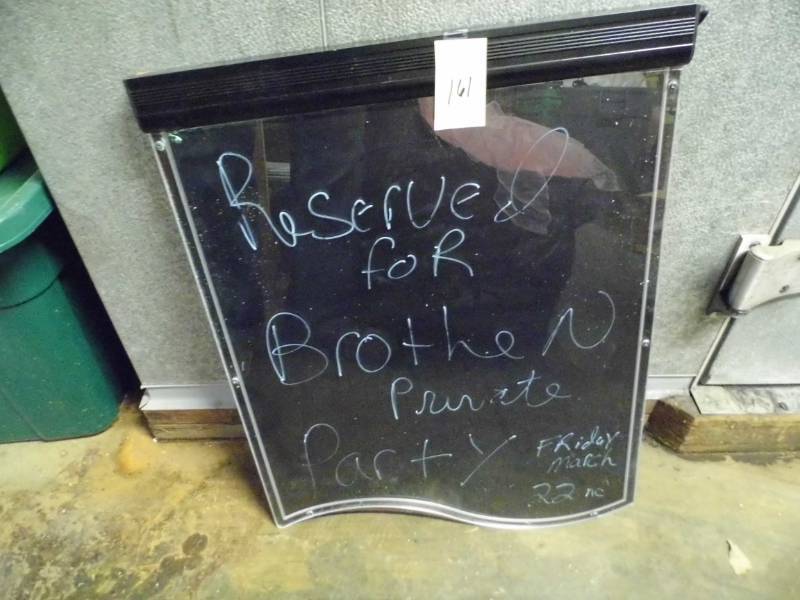 161
Reserved
foR
BrotheN
Private
Party
FRiday
March
22 nc